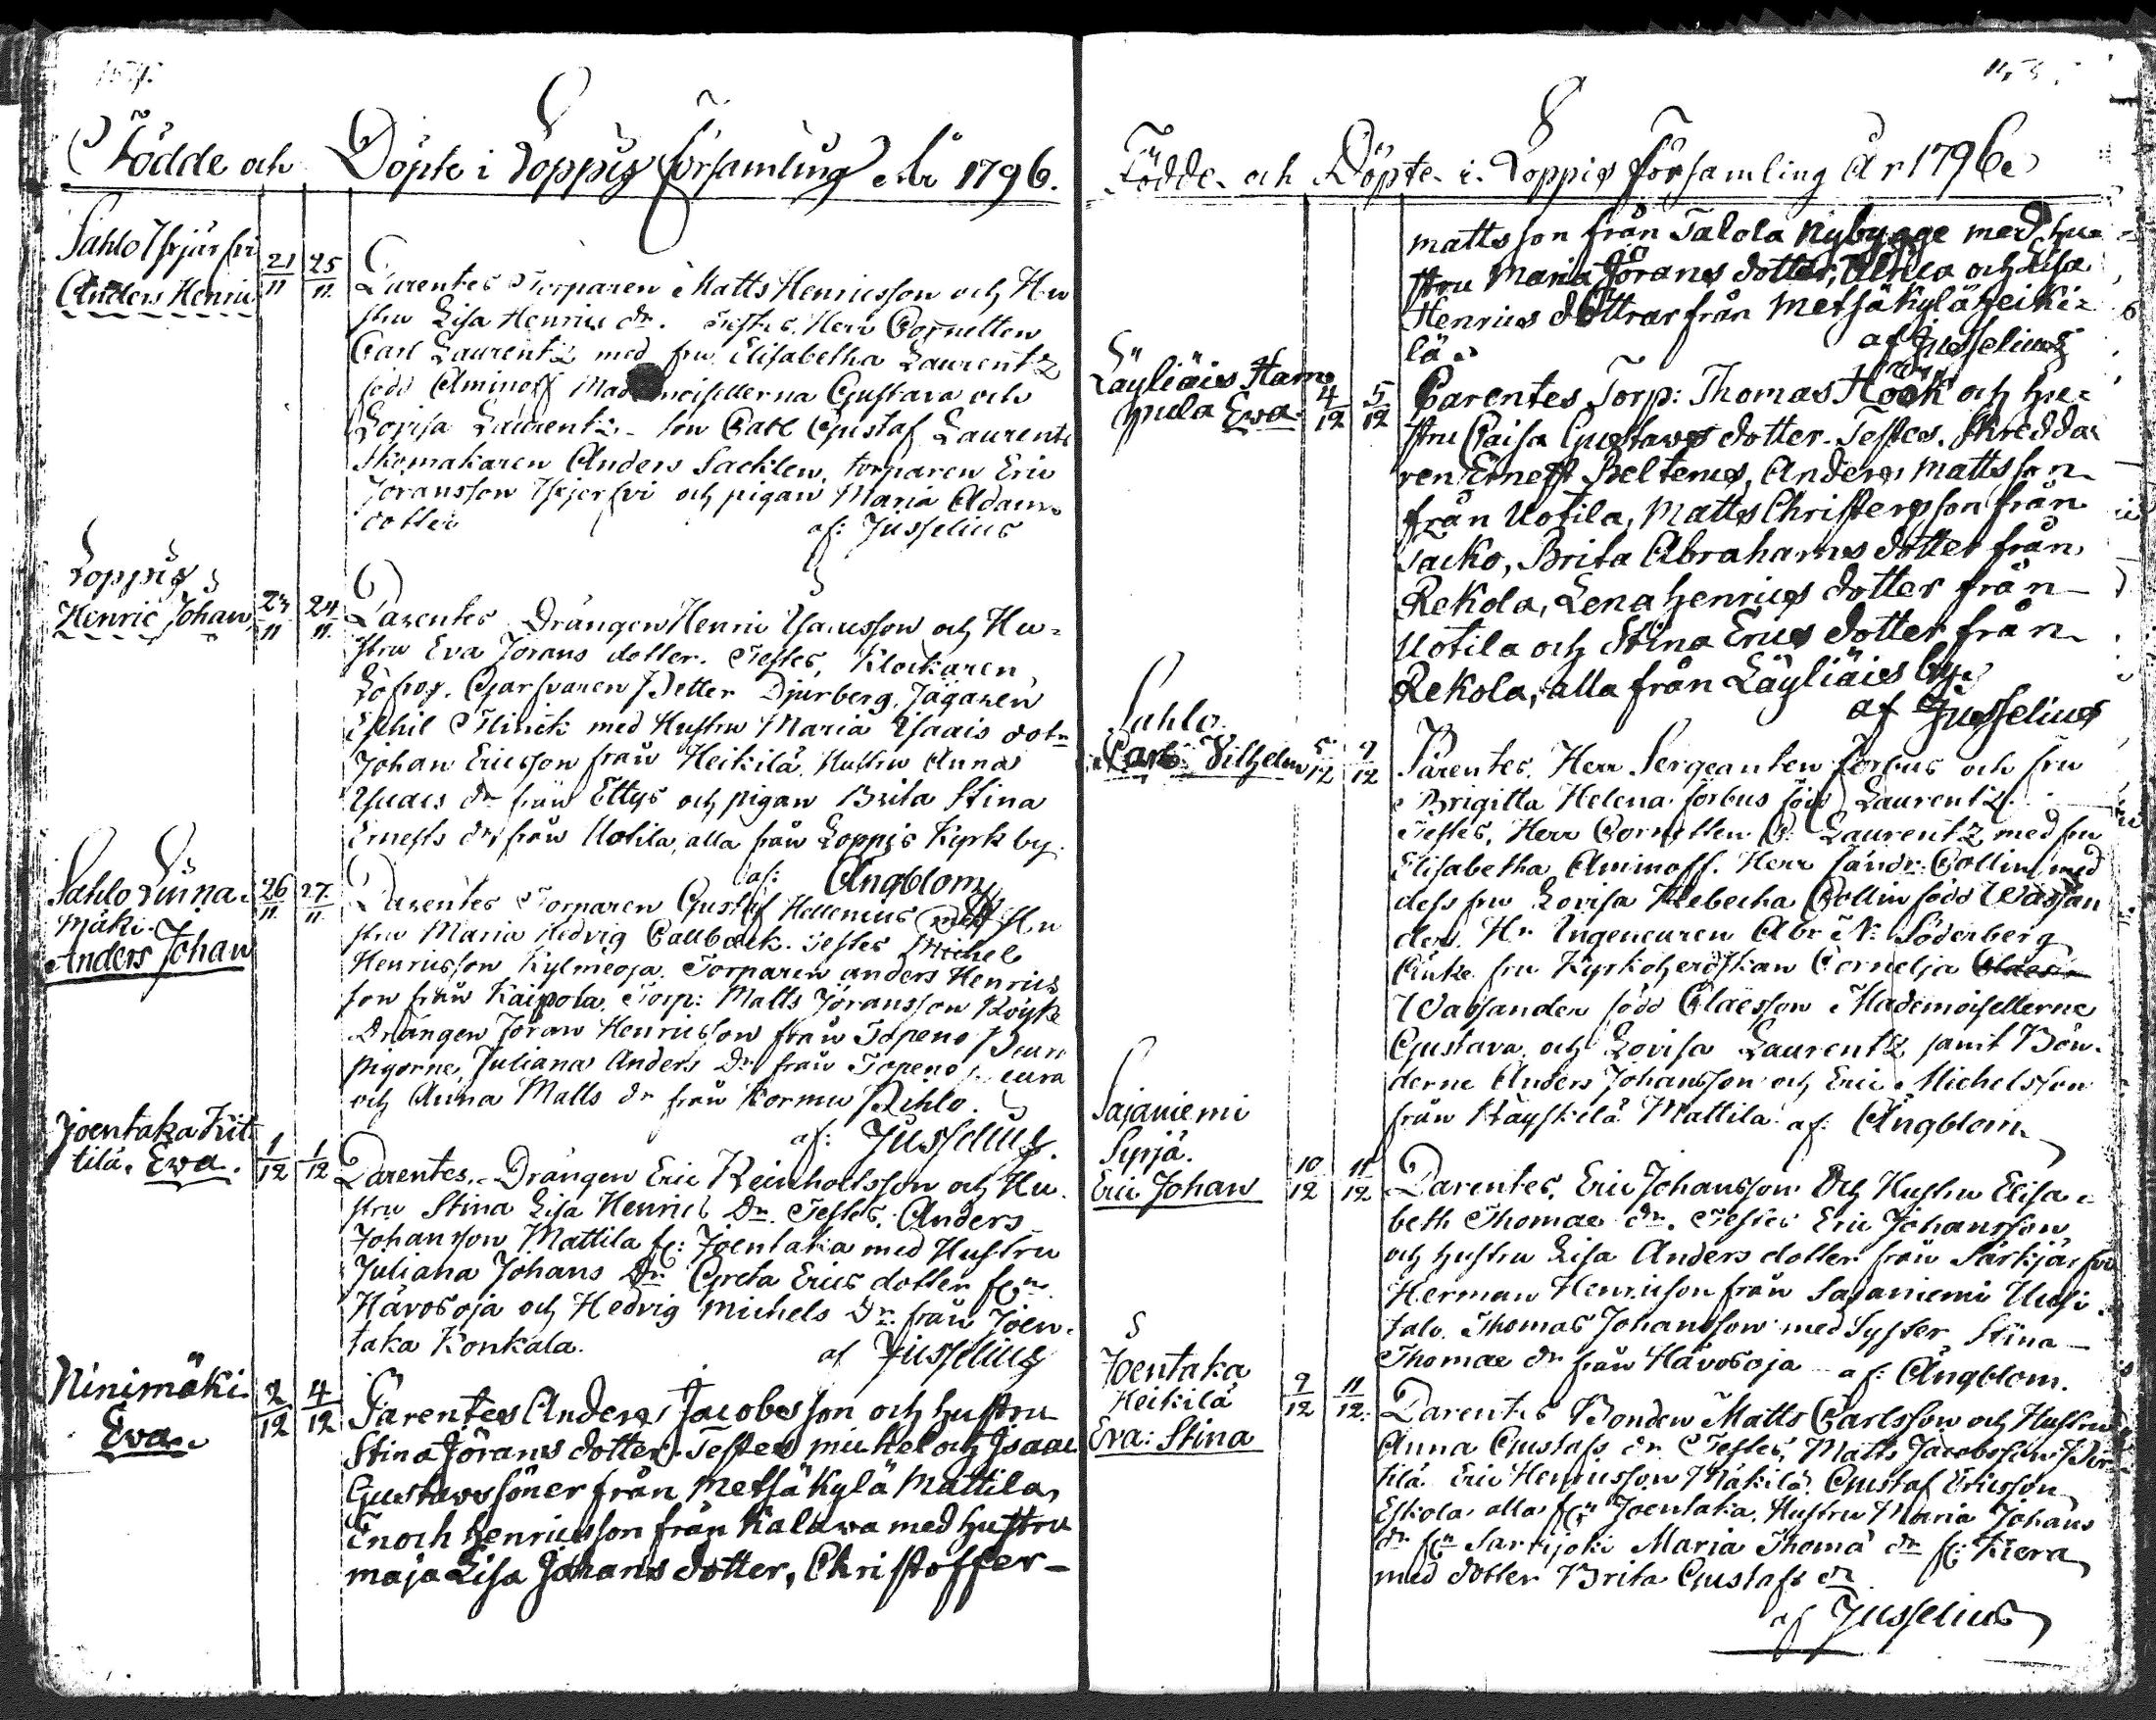 Födde och Döpte i Loppis församling År 1796.
Sahlo Ihjärfvi
Anders Henric
21/11 25/11
Parentes Torparen Matts Henricsson och Hu
stru Lisa Henrics dr. Testes, Herr Cornetten
Carl Laurentz med fru Elisabetha Laurentz
född Aminoff Mademoisellerna Gustava och
Lovisa Laurentz. Carl Gustaf Laurentz
Skomakaren Anders Sacklen, torparen Eric
Joransson och pigan Maria Adams
dotter af: Jusselius
Loppis
Henric Johan
23/11 24/11
Parentes Drängen Henric Isacsson och Hu=
stru Eva Jörans dotter. Testes, Klockaren
Löfroos. Garfvaren Petter Djurberg. Jägaren
Eskil Flinck med Hustru Maria Isaacs dotr
Johan Ericsson från Heikilä Hustru Anna
Isaacs dr från Ettys och pigan Brita Stina
Ernests dr från Uotila, alla från Loppis Kyrkby.
af: Ångblom
Sahlo Linna=
mäki.
Anders Johan
26/11 27/11
Parentes Torparen Gustaf Hellenius med Hu
stru Maria Hedvig Callbæck. Testes Michel
Henricsson Kylmeoja. Torparen anders Henrics
son från Kaipola, Torp: Matts Jöransson Köykè
Drängen Jöran Henricsson från Topeno Peura
pigorne, Juliana Anders Dr från Topeno Peura
och Anna Matts dr från Kormu Pihlo.
af: Jusselius.
Joentaka Kit
tilä, Eva.
1/12 1/12
Parentes. Drängen Eric Reinholtsson och Hu
stru Stina Lisa Henrics Dr. Testes, Anders
Johansson Mattila fr: Joentaka med Hustru
Juliana Johans Dr Greta Erics dotter frn
Hävosoja och Hedvig Michels Dr. från Joen=
taka Konkala. af Jusselius
Ninimäki.
Eva.
2/12 4/12
Parentes Anders Jacobsson och hustru
Stina Jörans dotter. Testes michel och Isaac
Gustavssöner från Metsäkylä Mattila,
Enoch Henricsson från Kalawa med hustru
maja Lisa Johans dotter, Christoffer-
Födde och Döpte i Loppis församling År 1796.
mattsson från Talola Nybygge med hu=
stru Maria Jörans dotter, Ulrica och Lisa
Henrics döttrar från Metsäkylä heiki=
lä. af Jusselius
Läyliäis Ham=
pula Eva.
4/12 5/12
Parentes Torp: Thomas Höök och hu=
stru Caisa Gustavs dotter. Testes, Skredda
ren Ernest Beltenus, Anders mattsson
från Uotila, Matts Christersson från
Jacko, Brita Abrahams dotter från
Rekola, Lena henrics dotter från
Uotila och Stina Erics dotter från
Rekola, alla från Läyliäis by.
af Jusselius
Sahlo.
Carl Vilhelm
5/12 9/12
Parentes. Herr Sergeanten Forbus och fru
Brigitta Helena Forbus född Laurentz.
Testes, Herr Cornetten C: Laurentz med fru
Elisabetha Aminoff. Herr Fändr: Collin med
dess fru Lovisa Rebecka Collin född Wassan
der. Hr Ingeneuren Abr N: Söderberg
Enke fru Kyrkoherdskan Cornelja
Wassander född Claesson Mademoisellerne
Gustava och Lovisa Laurentz samt Bön=
derne Anders Johansson och Eric Michelsson
från Räyskilä Mattila. af: Ångblom
Sajaniemi
Syrjä.
Eric Johan
10/12 11/12
Parentes, Eric Johansson Och Hustru Elisa=
beth Thomae dr. Testes Eric Johansson
och hustru Lisa Anders dotter från Särkjärfvi
Herman Henricson från Sajaniemi Uusi
talo. Thomas Johansson med Syster Stina
Thomae dr från Hävosoja af: Ångblom.
Joentaka
Heikilä
Eva: Stina
9/12 11/12
Parentes Bonden Matts Carlsson och Hustru
Anna Gustafs dr Testes, Matts Jacobsson Per
tilä Eric Henricsson Mäkilä, Gustaf Ericsson
Eskola alla frn Joentaka, Hustru Maria Johans
dr frn Sarkijoki Maria Thomæ dr fr: Kiera
med dotter Brita Gustafs dr
af Jusselius